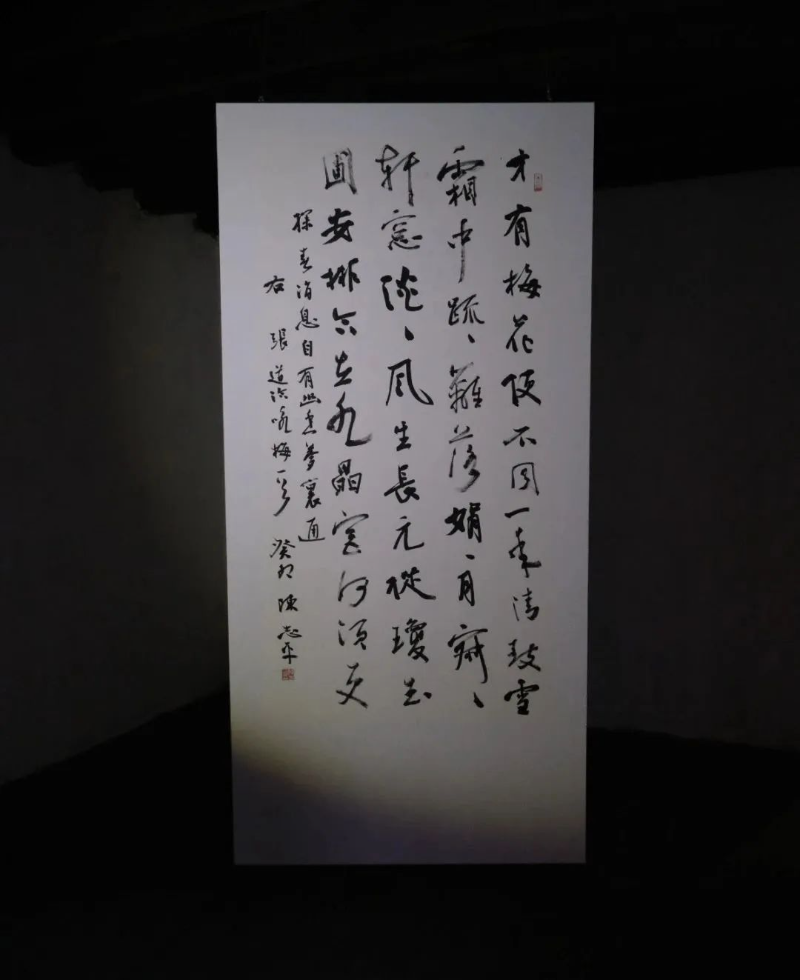 才有梅花便不同一年清致雪
霜中疏〻籬落娟〻月寂〻
軒窓淡〻風生長元從瓊玉
圃安排合在水晶宮何須更
探春消息自有幽香夢裏通
右張道洽咏梅一首 癸卯陳志平